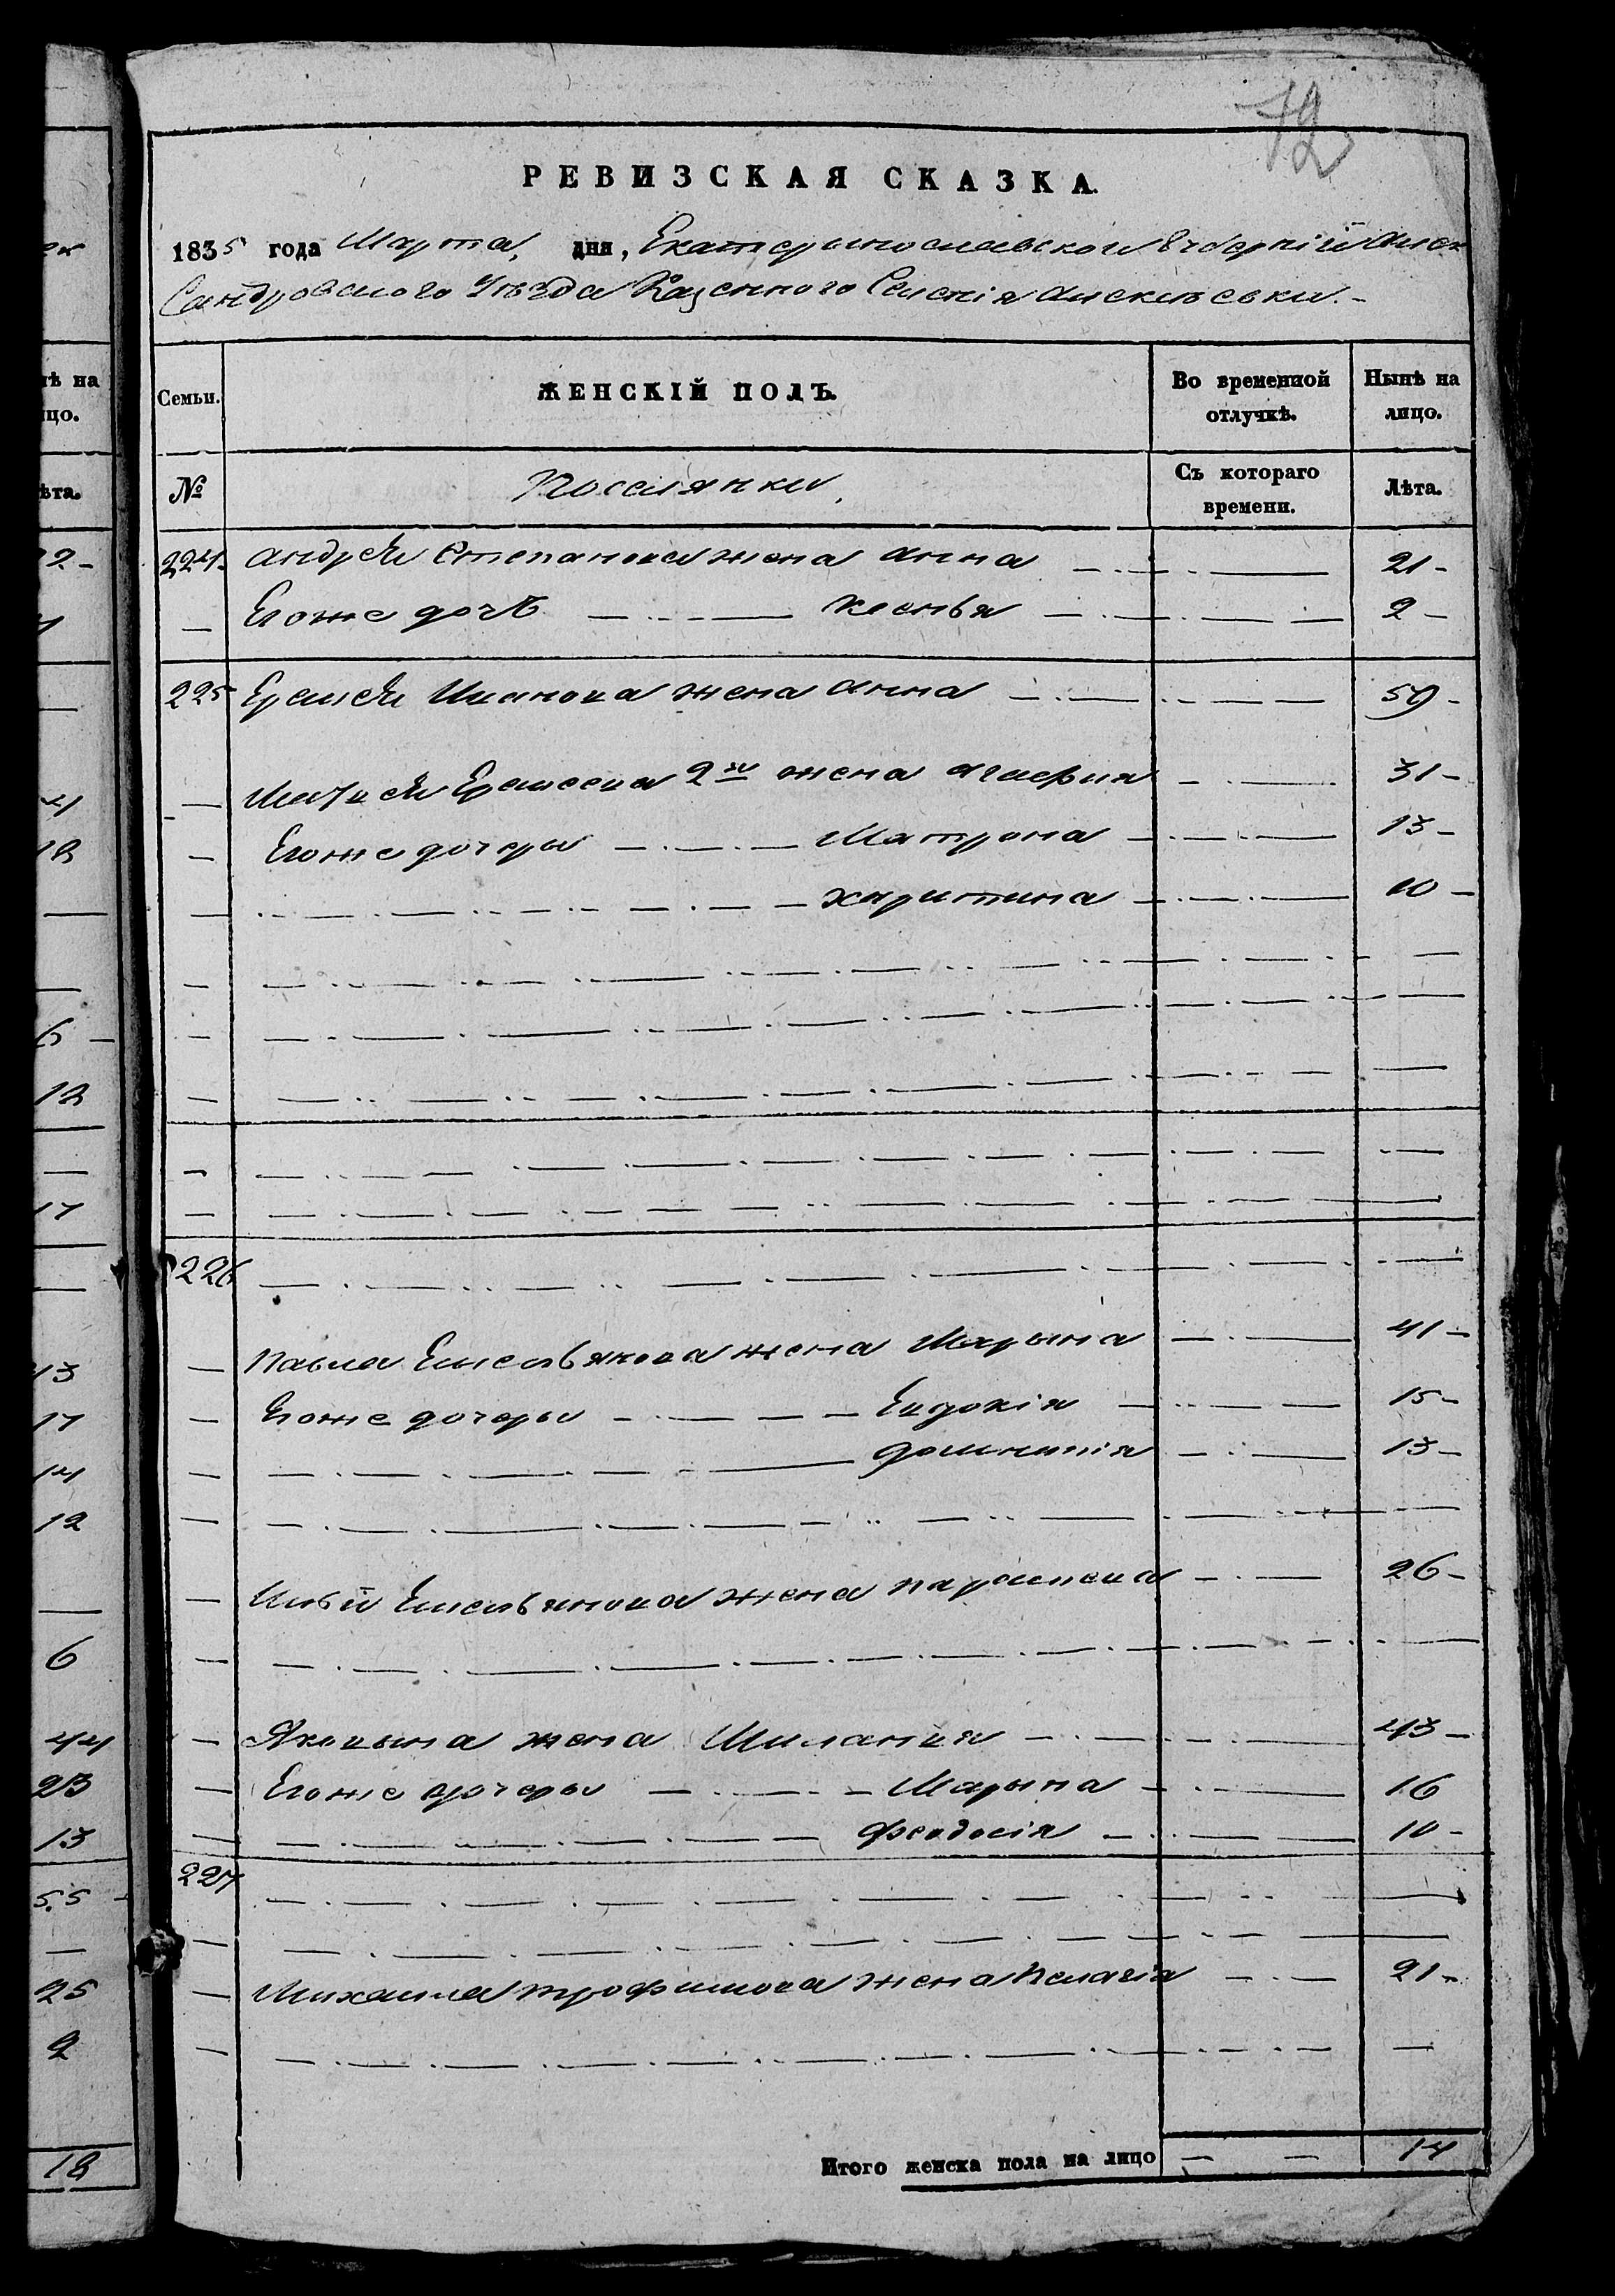 72
РЕВИЗСКАЯ СКАЗКА.
1835 года Марта, дня, Екатериославской Губерніи Алек
Сандровского Уѣзда Казенного Селенія Алексѣевки.
Семьи. ЖЕНСКІЙ ПОЛЪ. Во временной отлучкѣ. Нынѣ на лицо.
№ Поселянки. Съ котораго времени. Лѣта.
224. Андрея Степанова жена Анна 21
Егоже дочь Ксенья 2
225 Еремея Иванова жена Анна 59
Матвея Еремеева 2я жена Агафия 31
Егоже дочеры Матрона 13
Харитина 10
226
Павла Емельянова жена Марына 41
Егоже дочеры Евдокія 15
Домникія 13
Ильи Емельянова жена Параскева 26
Яковына жена Милания 43
Егоже дочеры Марына 16
Феодосія 10
227
Михаила Трофимова жена Пелагія 21
Итого женска пола на лицо 14
нѣ на
цо.
ѣта.
22
4
18
6
12
17
43
17
14
12
6
44
23
13
55
25
2
18